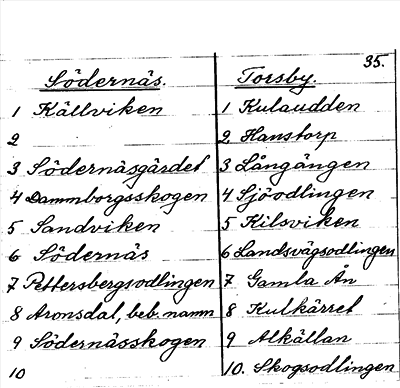 35.
Södernäs.
1 Källviken
2
3 Södernäsgärdet
4 Dammborgsskogen
5 Sandviken
6 Södernäs
7 Pettersbergsodlingen
8 Aronsdal, beb. namn
9 Södernässkogen
10
Torsby.
1 Kulaudden
2 Hanstorp
3 Långängen
4 Sjöodlingen
5 Kilsviken
6 Landsvägsodlingen
7 Gamla Ån
8 Kulkärret
9 Alkällan
10. Skogsodlingen